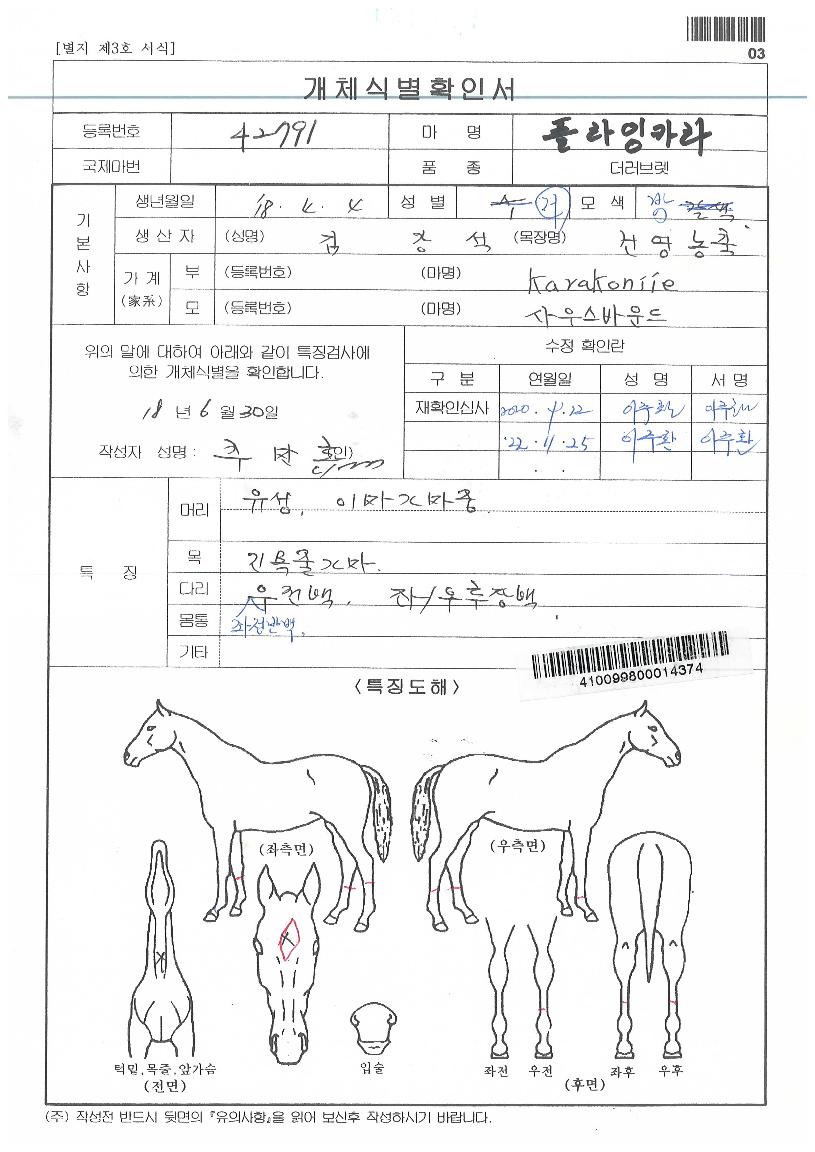 [별지 제3호 서식]
03
개체식별확인서
등록번호 42791 마 명 플라잉카라
국제마번 품 종 더러브렛
기본사항
생년월일 '18. 4. 4 성 별 수 거 모 색 갈색
생 산 자 (성명) 김 장 석 (목장명) 건영농축
가 계 (家系) 부 (등록번호) (마명) Karakontie
모 (등록번호) (마명) 사우스바운드
위의 말에 대하여 아래와 같이 특징검사에
의한 개체식별을 확인합니다.
18 년 6 월 30 일
작성자 성명 : (인)
수정 확인란
구 분 연월일 성 명 서 명
재확인심사 2020. 4. 22 이주환 이주환
'22. 11. 25 이주환 이주환
. .
특 징
머리 유성, 이마gamma중
목 긴목줄gamma.
다리 우전백, 좌/우후장백
몸통 좌전반백,
기타
410099800014374
<특징도해>
(좌측면) (우측면)
턱밑,목줄,앞가슴
(전면)
입술
좌전 우전 좌후 우후
(후면)
(주) 작성전 반드시 뒷면의 『유의사항』을 읽어 보신후 작성하시기 바랍니다.